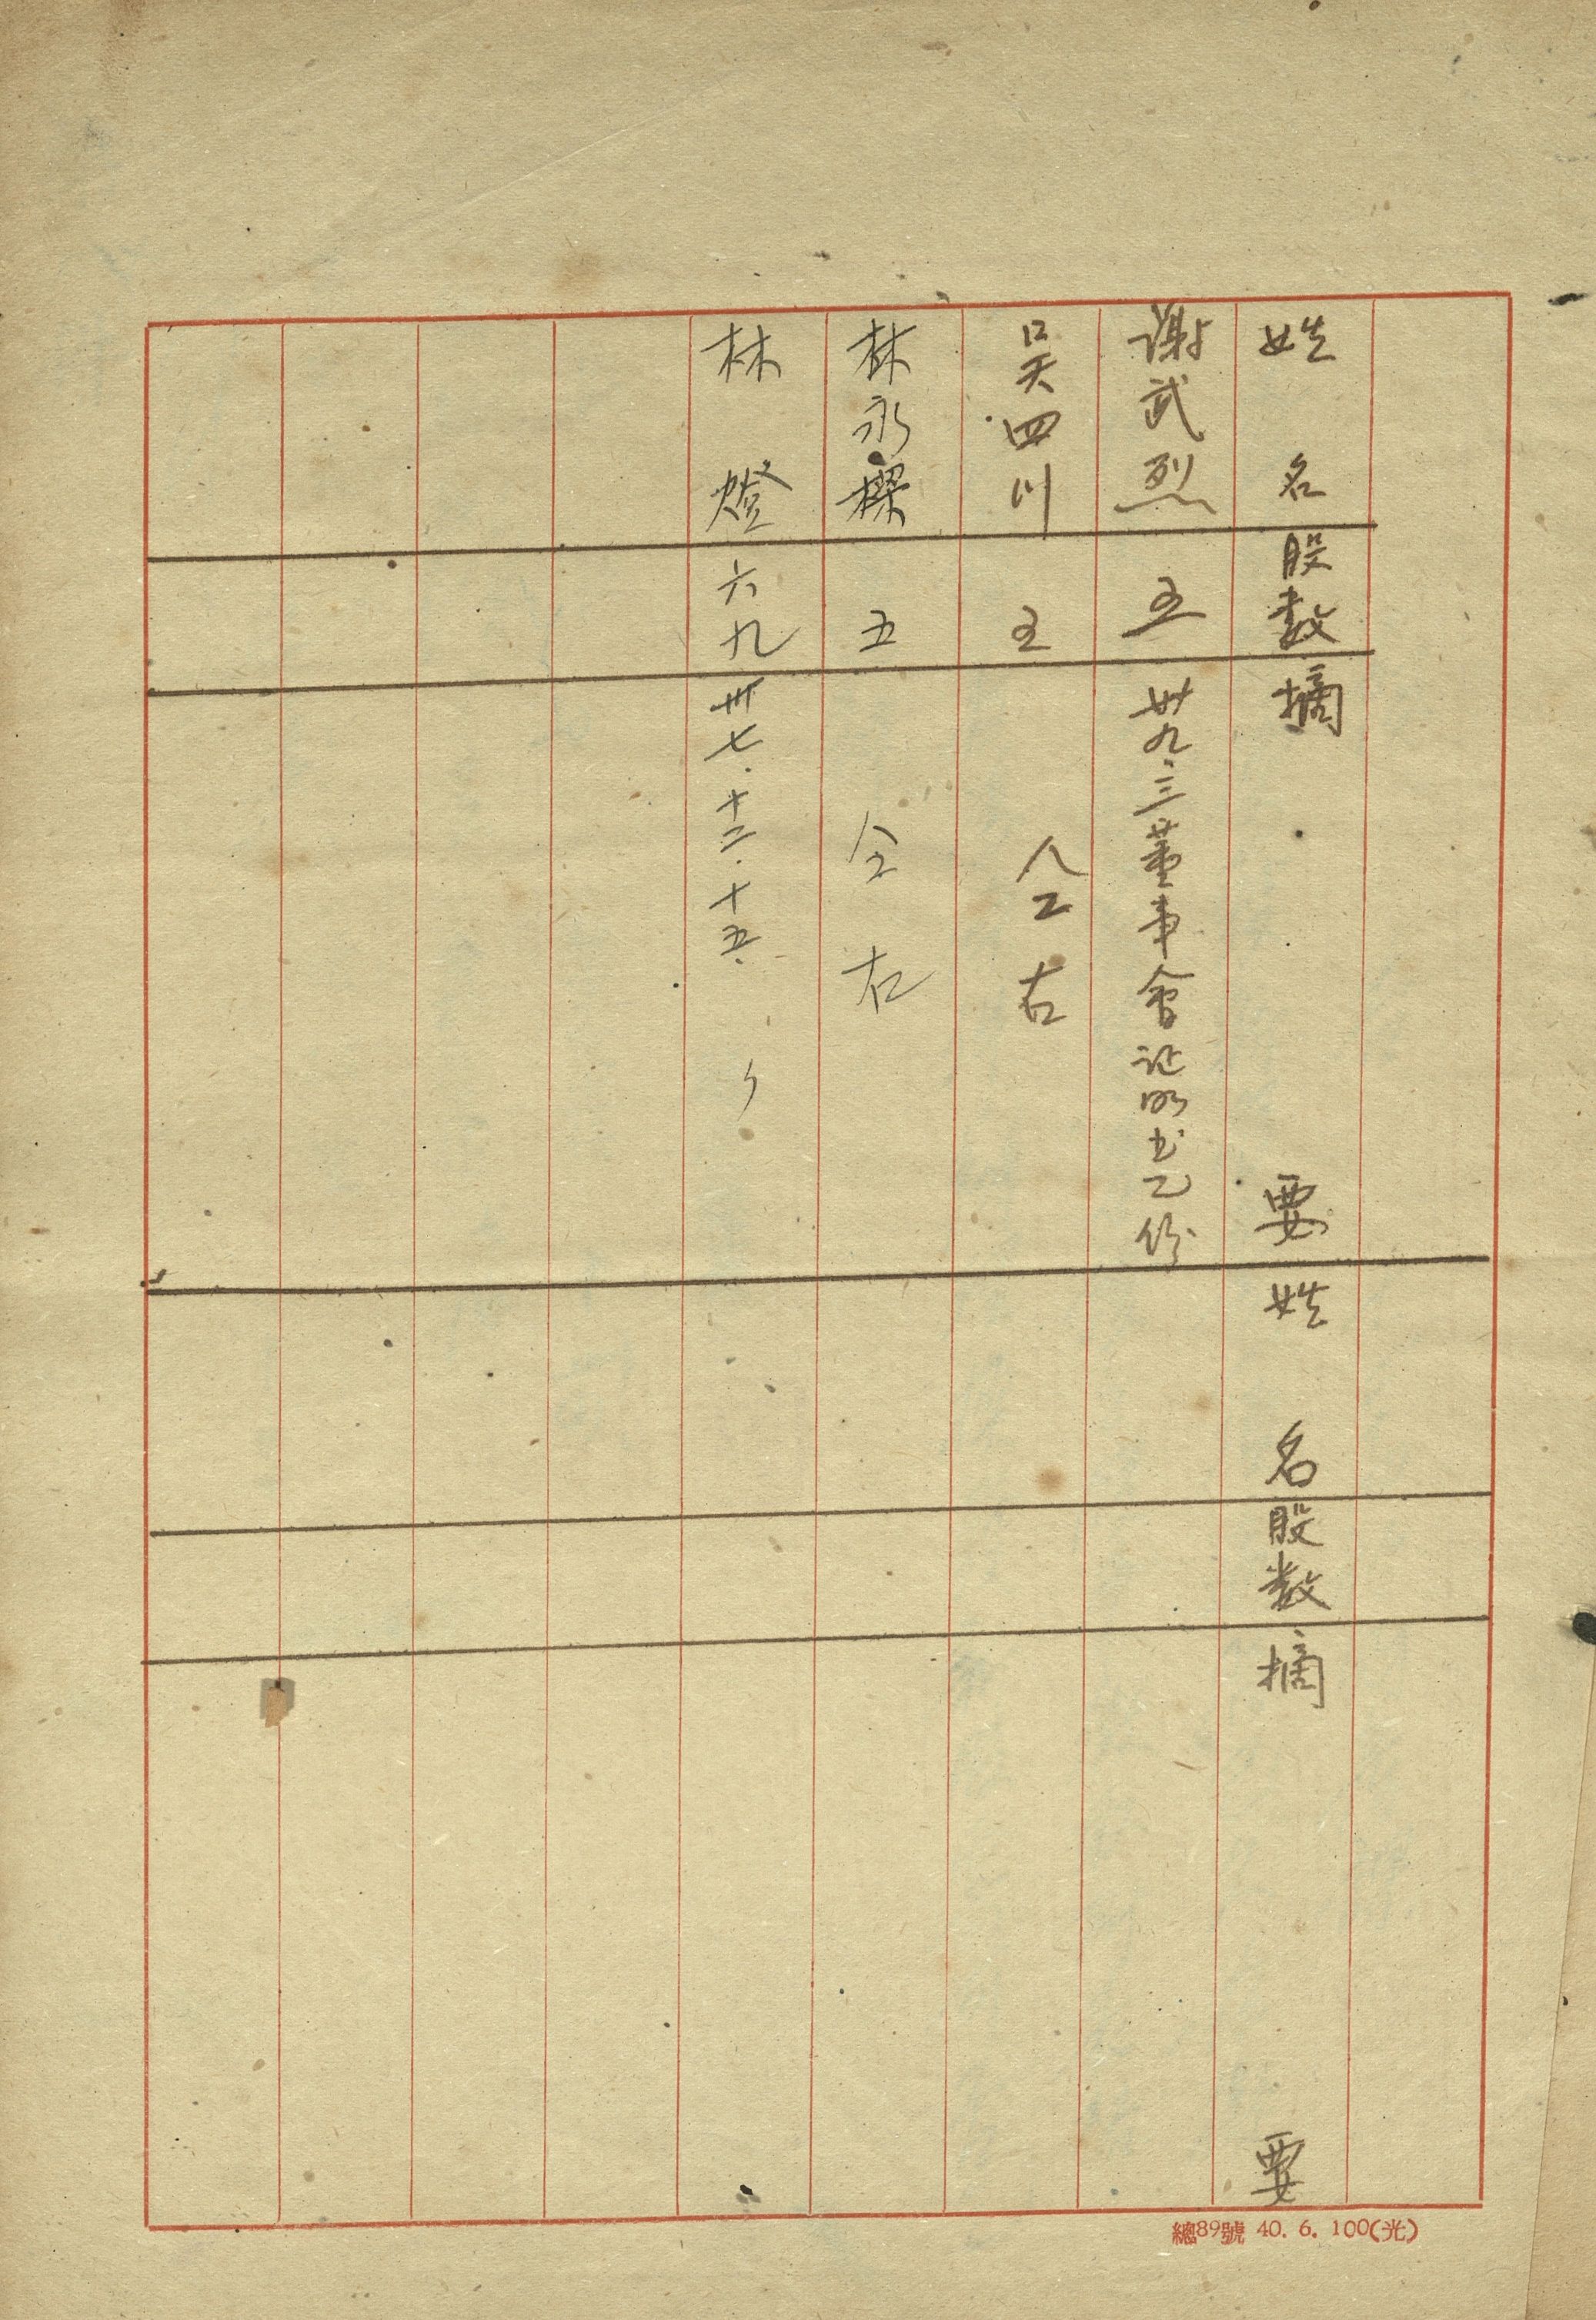 姓名 股数 摘要 姓名 股数 摘要
谢武烈 五 卅九.三董事会证明书乙份
吴四川 五 仝右
林永樑 五 仝右
林燈 六九 卅七.十二.十五. 〃
總89號 40. 6. 100(光)